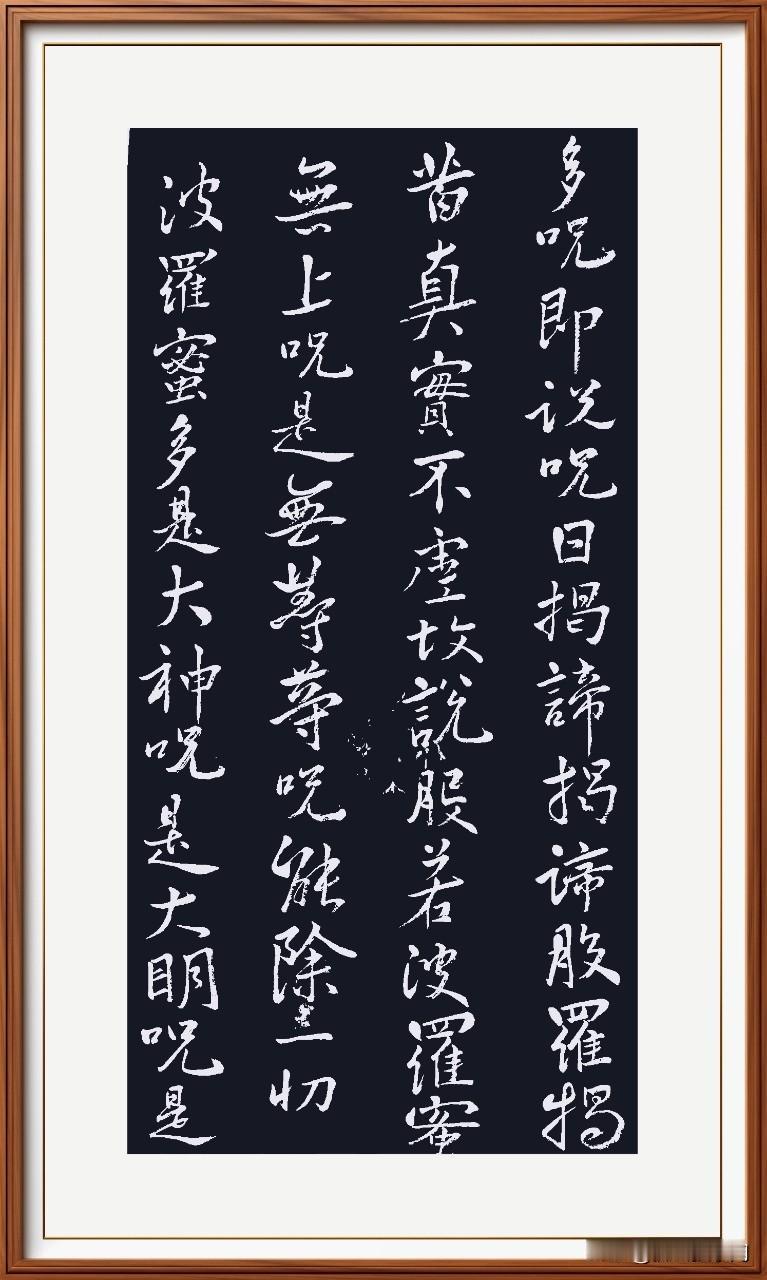 波羅蜜多是大神呪是大明呪是
無上呪是無等等呪能除一切
苦真實不虛故說般若波羅蜜
多呪即說呪曰揭諦揭諦般羅揭